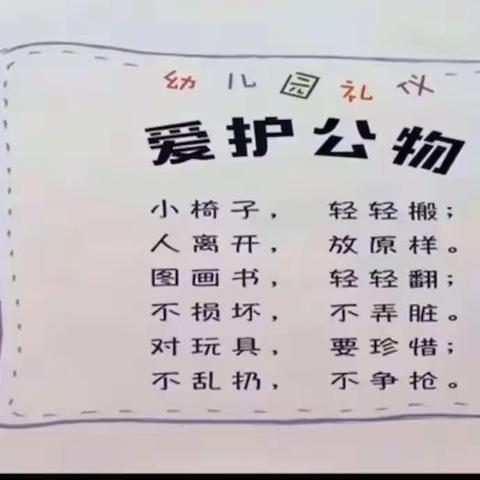 幼儿园礼仪
爱护公物
小椅子， 轻轻搬；
人离开， 放原样。
图画书， 轻轻翻；
不损坏， 不弄脏。
对玩具， 要珍惜；
不乱扔， 不争抢。